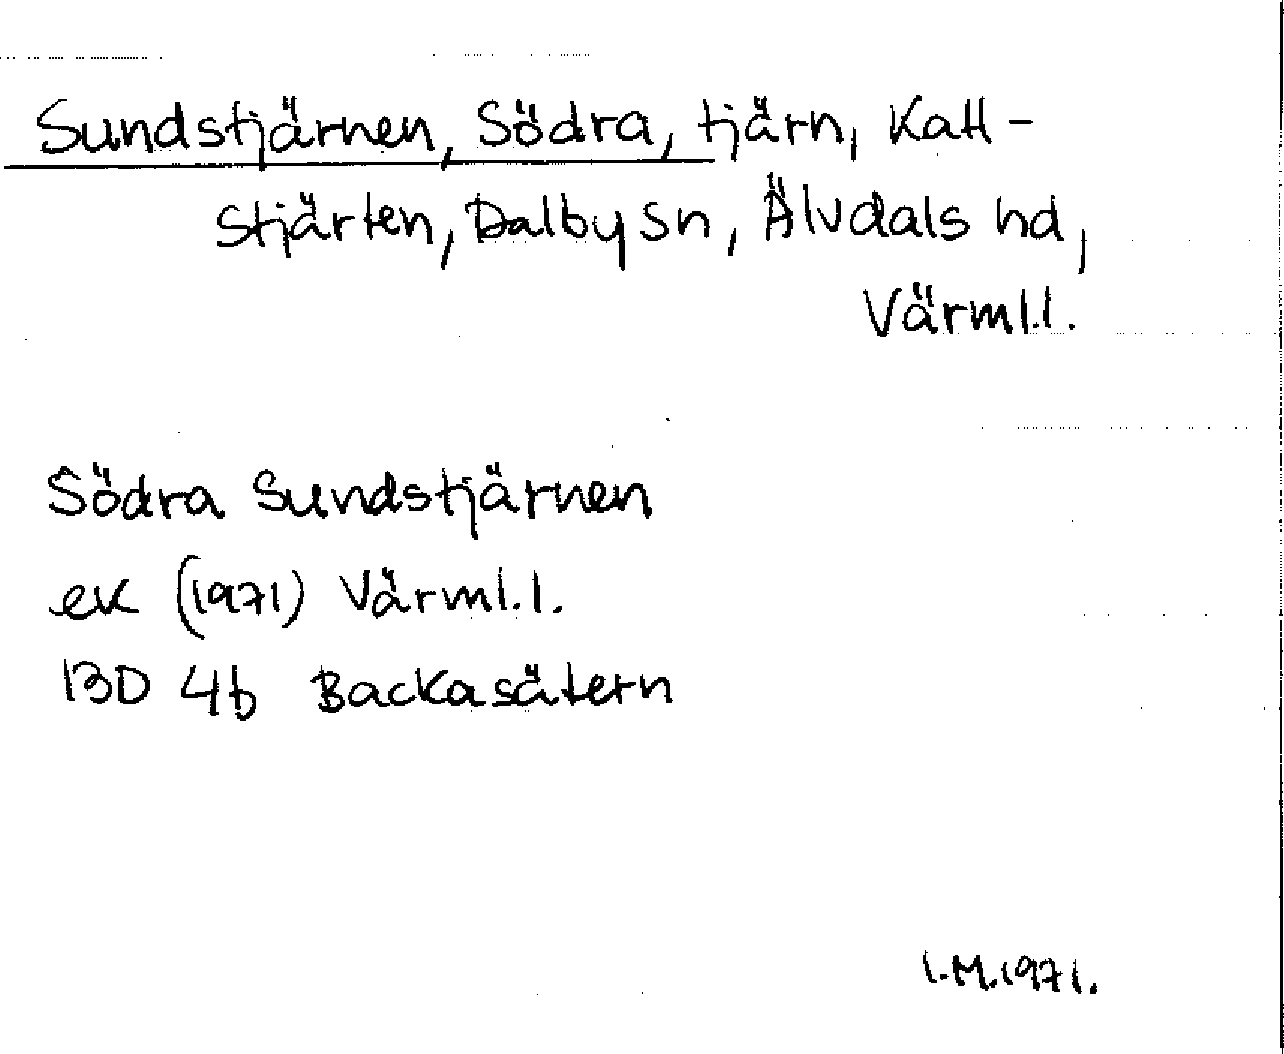 Sundstjärnen, Södra, tjärn, Katt-
stjärten, Dalby sn, Älvdals hd,
Värml.l.
Södra Sundstjärnen
ek (1971) Värml.l.
13D 4b Backasätern
I.M.1971.